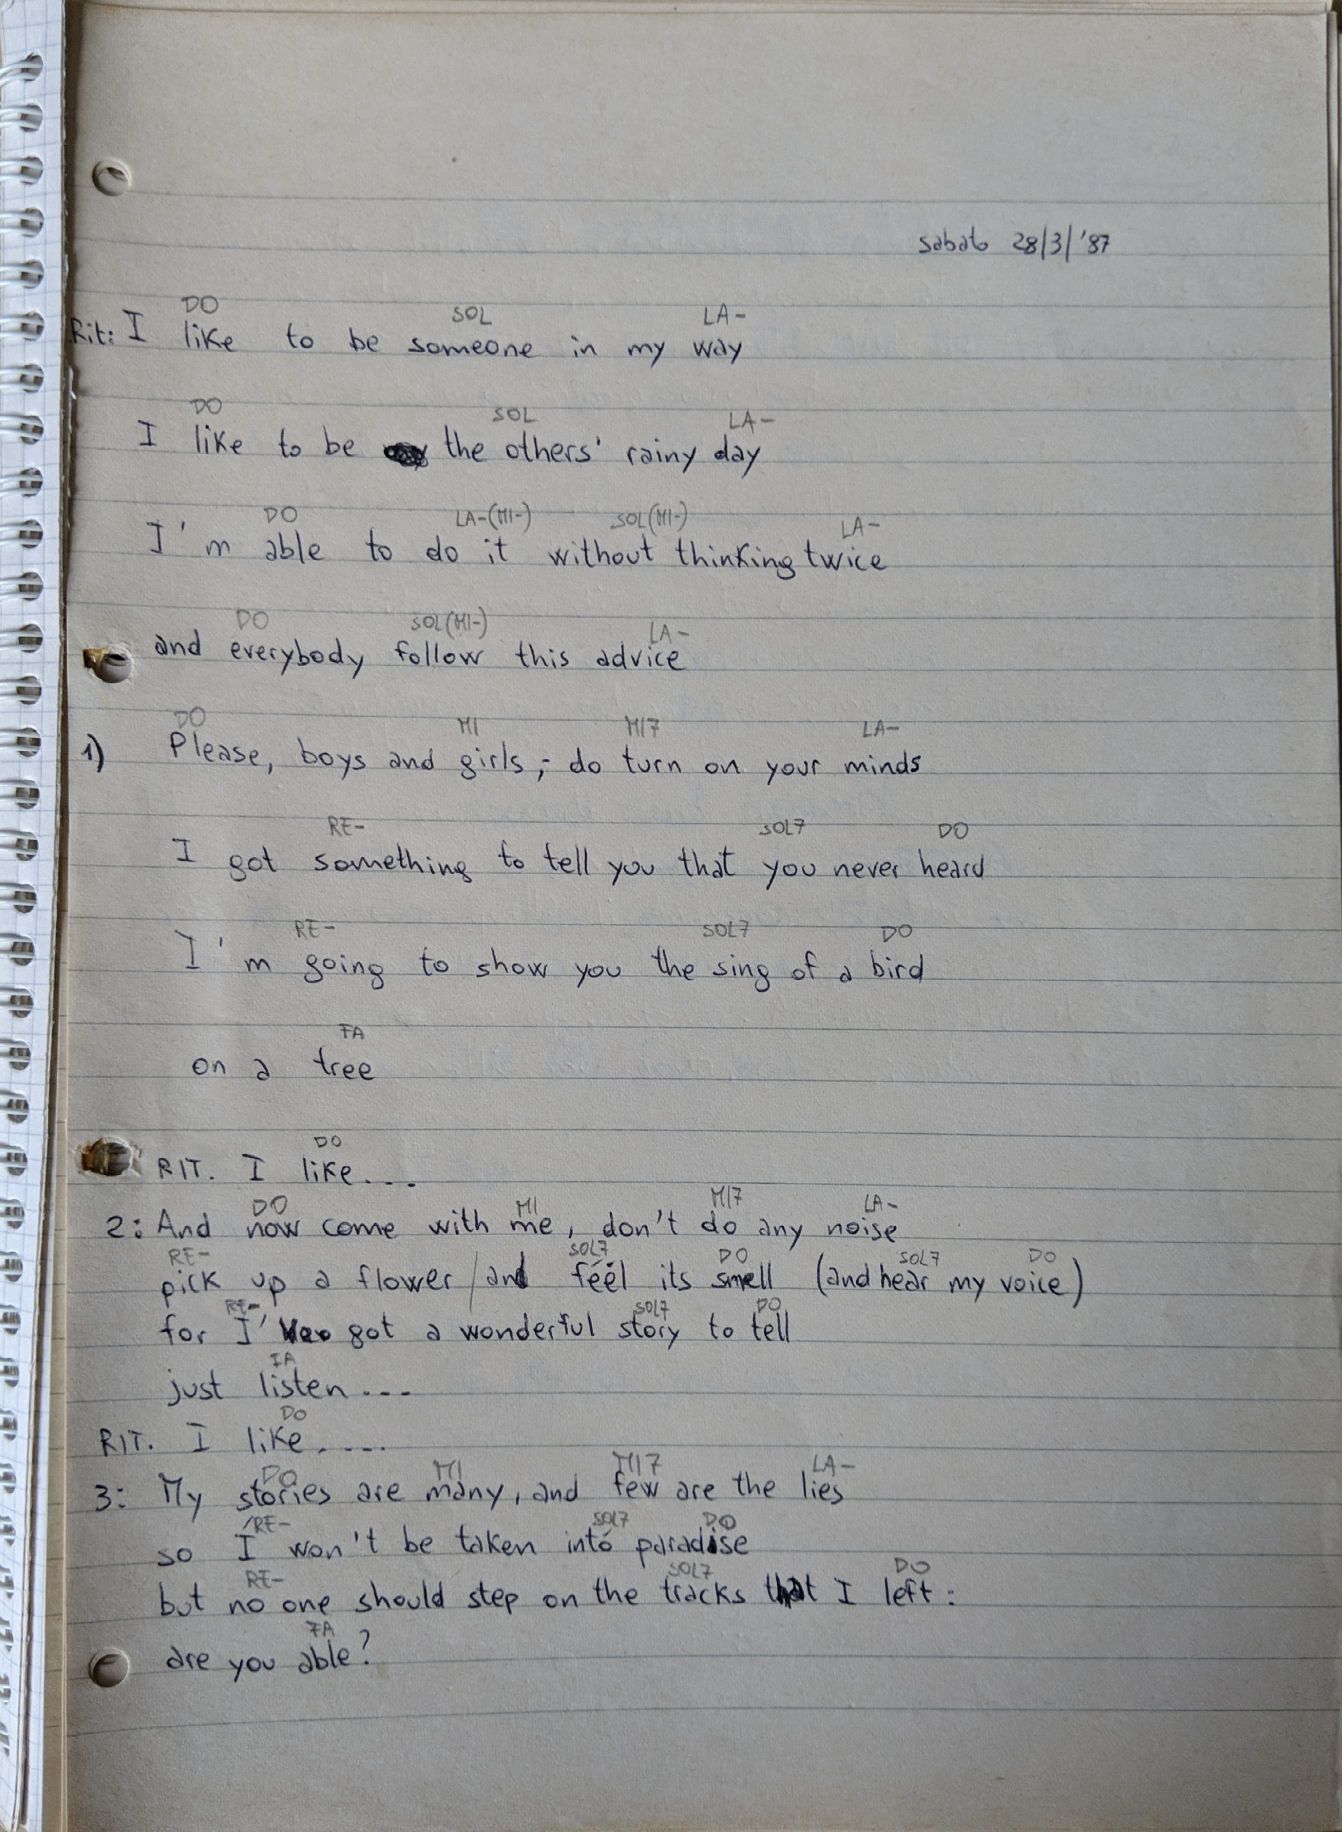 sabato 28/3/'87
DO SOL LA-
Rit: I like to be someone in my way
DO SOL LA-
I like to be the others' rainy day
DO LA-(MI-) SOL(MI-) LA-
I'm able to do it without thinking twice
DO SOL(MI-) LA-
and everybody follow this advice
DO MI MI7 LA-
1) Please, boys and girls, do turn on your minds
RE- SOL7 DO
I got something to tell you that you never heard
RE- SOL7 DO
I'm going to show you the sing of a bird
FA
on a tree
DO
RIT. I like....
DO MI MI7 LA-
2: And now come with me, don't do any noise
RE- SOL7 DO SOL7 DO
pick up a flower / and feel its smell (and hear my voice)
RE- SOL7 DO
for I've got a wonderful story to tell
FA
just listen...
DO
RIT. I like.....
DO MI MI7 LA-
3: My stories are many, and few are the lies
RE- SOL7 DO
so I won't be taken into paradise
RE- SOL7 DO
but no one should step on the tracks that I left:
FA
are you able?